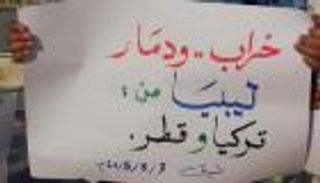 خراب - ودمار
ليبيا
من :
تركيا و قطر .